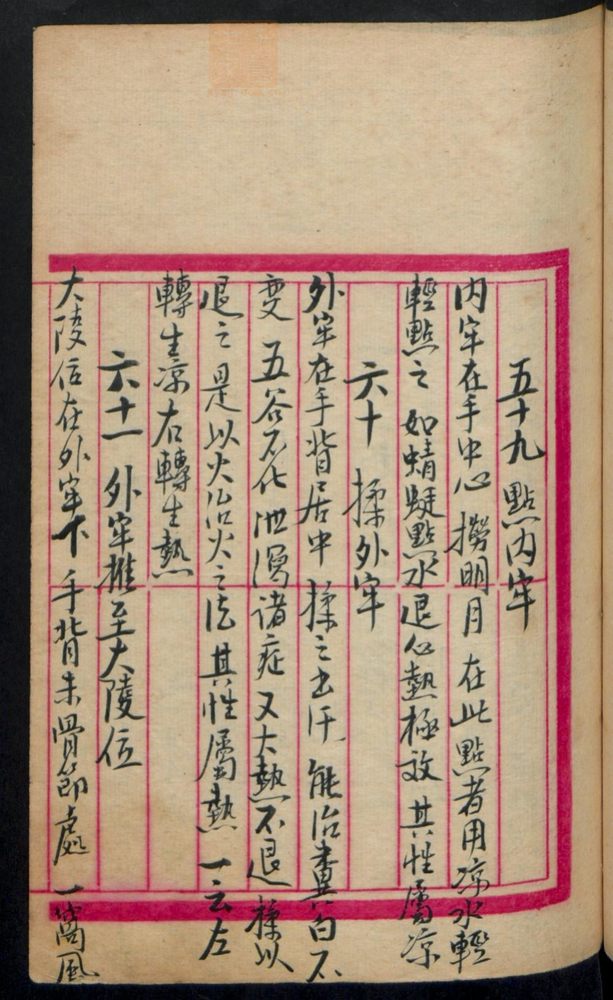 五十九 點内牢
内牢在手中心 撈明月 在此點者用凉水輕
輕點之 如蜻蜓點水退心熱極效 其性屬凉
六十 揉外牢
外牢在手背居中 揉之出汗 能治糞白不
变 五谷不化 泄瀉諸症 又大熱不退 揉以
退之 是以火治火之法 其性屬熱 一云左
轉生凉 右轉生熱
六十一 外牢推至大陵位
大陵位在外牢下 手背末骨節處 一窩風